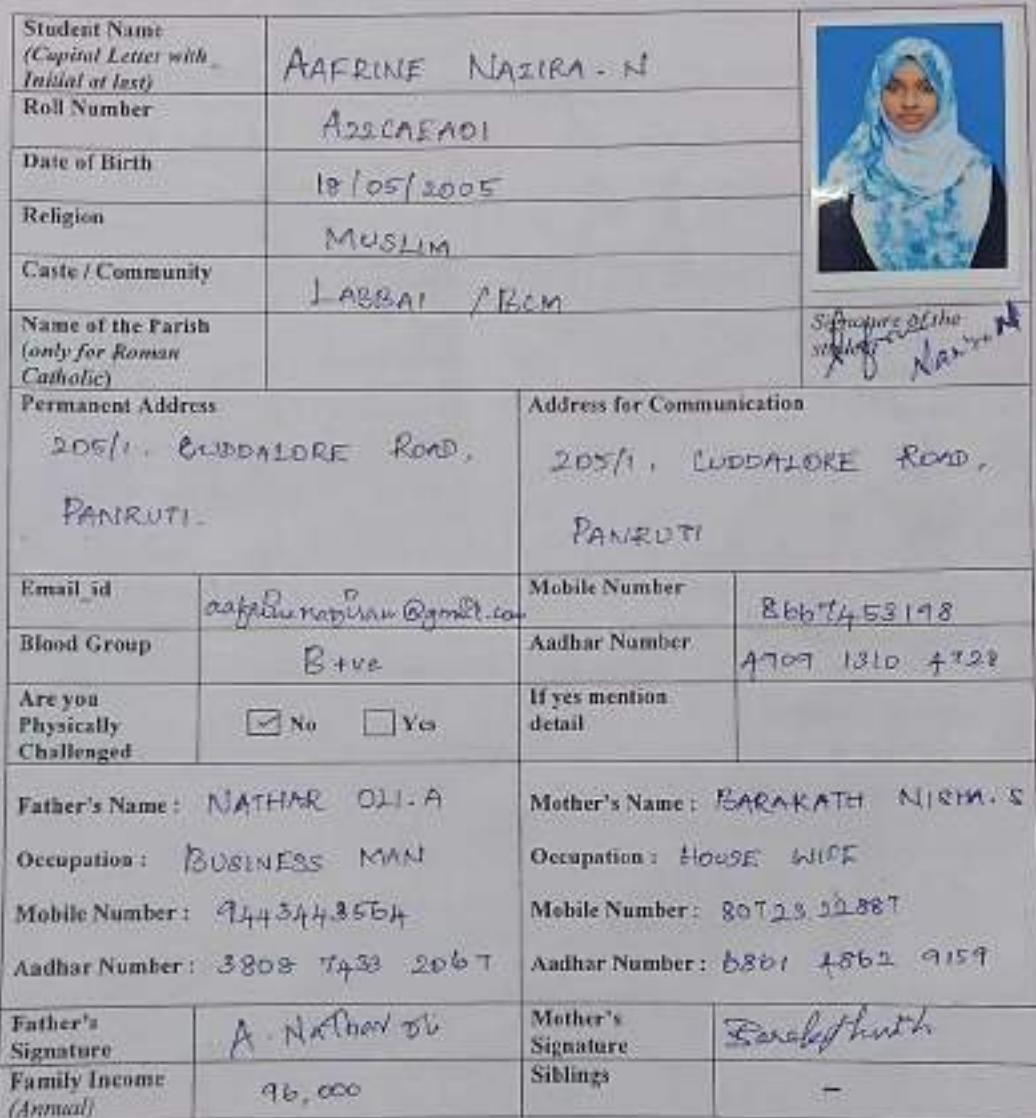 Student Name
(Capital Letter with
Initial at last)
AAFRINE NAZIRA - N
Roll Number
A22CAEA01
Date of Birth
18/05/2005
Religion
MUSLIM
Caste / Community
LABBAI / BCM
Name of the Parish
(only for Roman
Catholic)
Signature of the
Permanent Address
205/1, CUDDALORE ROAD,
PANRUTI.
Address for Communication
205/1, CUDDALORE ROAD,
PANRUTI
Email_id
Mobile Number
8667453198
Blood Group
B+ve
Aadhar Number
4909 1310 4728
Are you
Physically
Challenged
No Yes
If yes mention
detail
Father's Name : NATHAR OLI.A
Occupation : BUSINESS MAN
Mobile Number : 9443443564
Aadhar Number : 3808 7433 2067
Mother's Name : BARAKATH NISHA. S
Occupation : HOUSE WIFE
Mobile Number : 80723 22887
Aadhar Number : 6861 4862 9159
Father's
Signature
A. Nathar Oli
Mother's
Signature
Family Income
(Annual)
96,000
Siblings
-